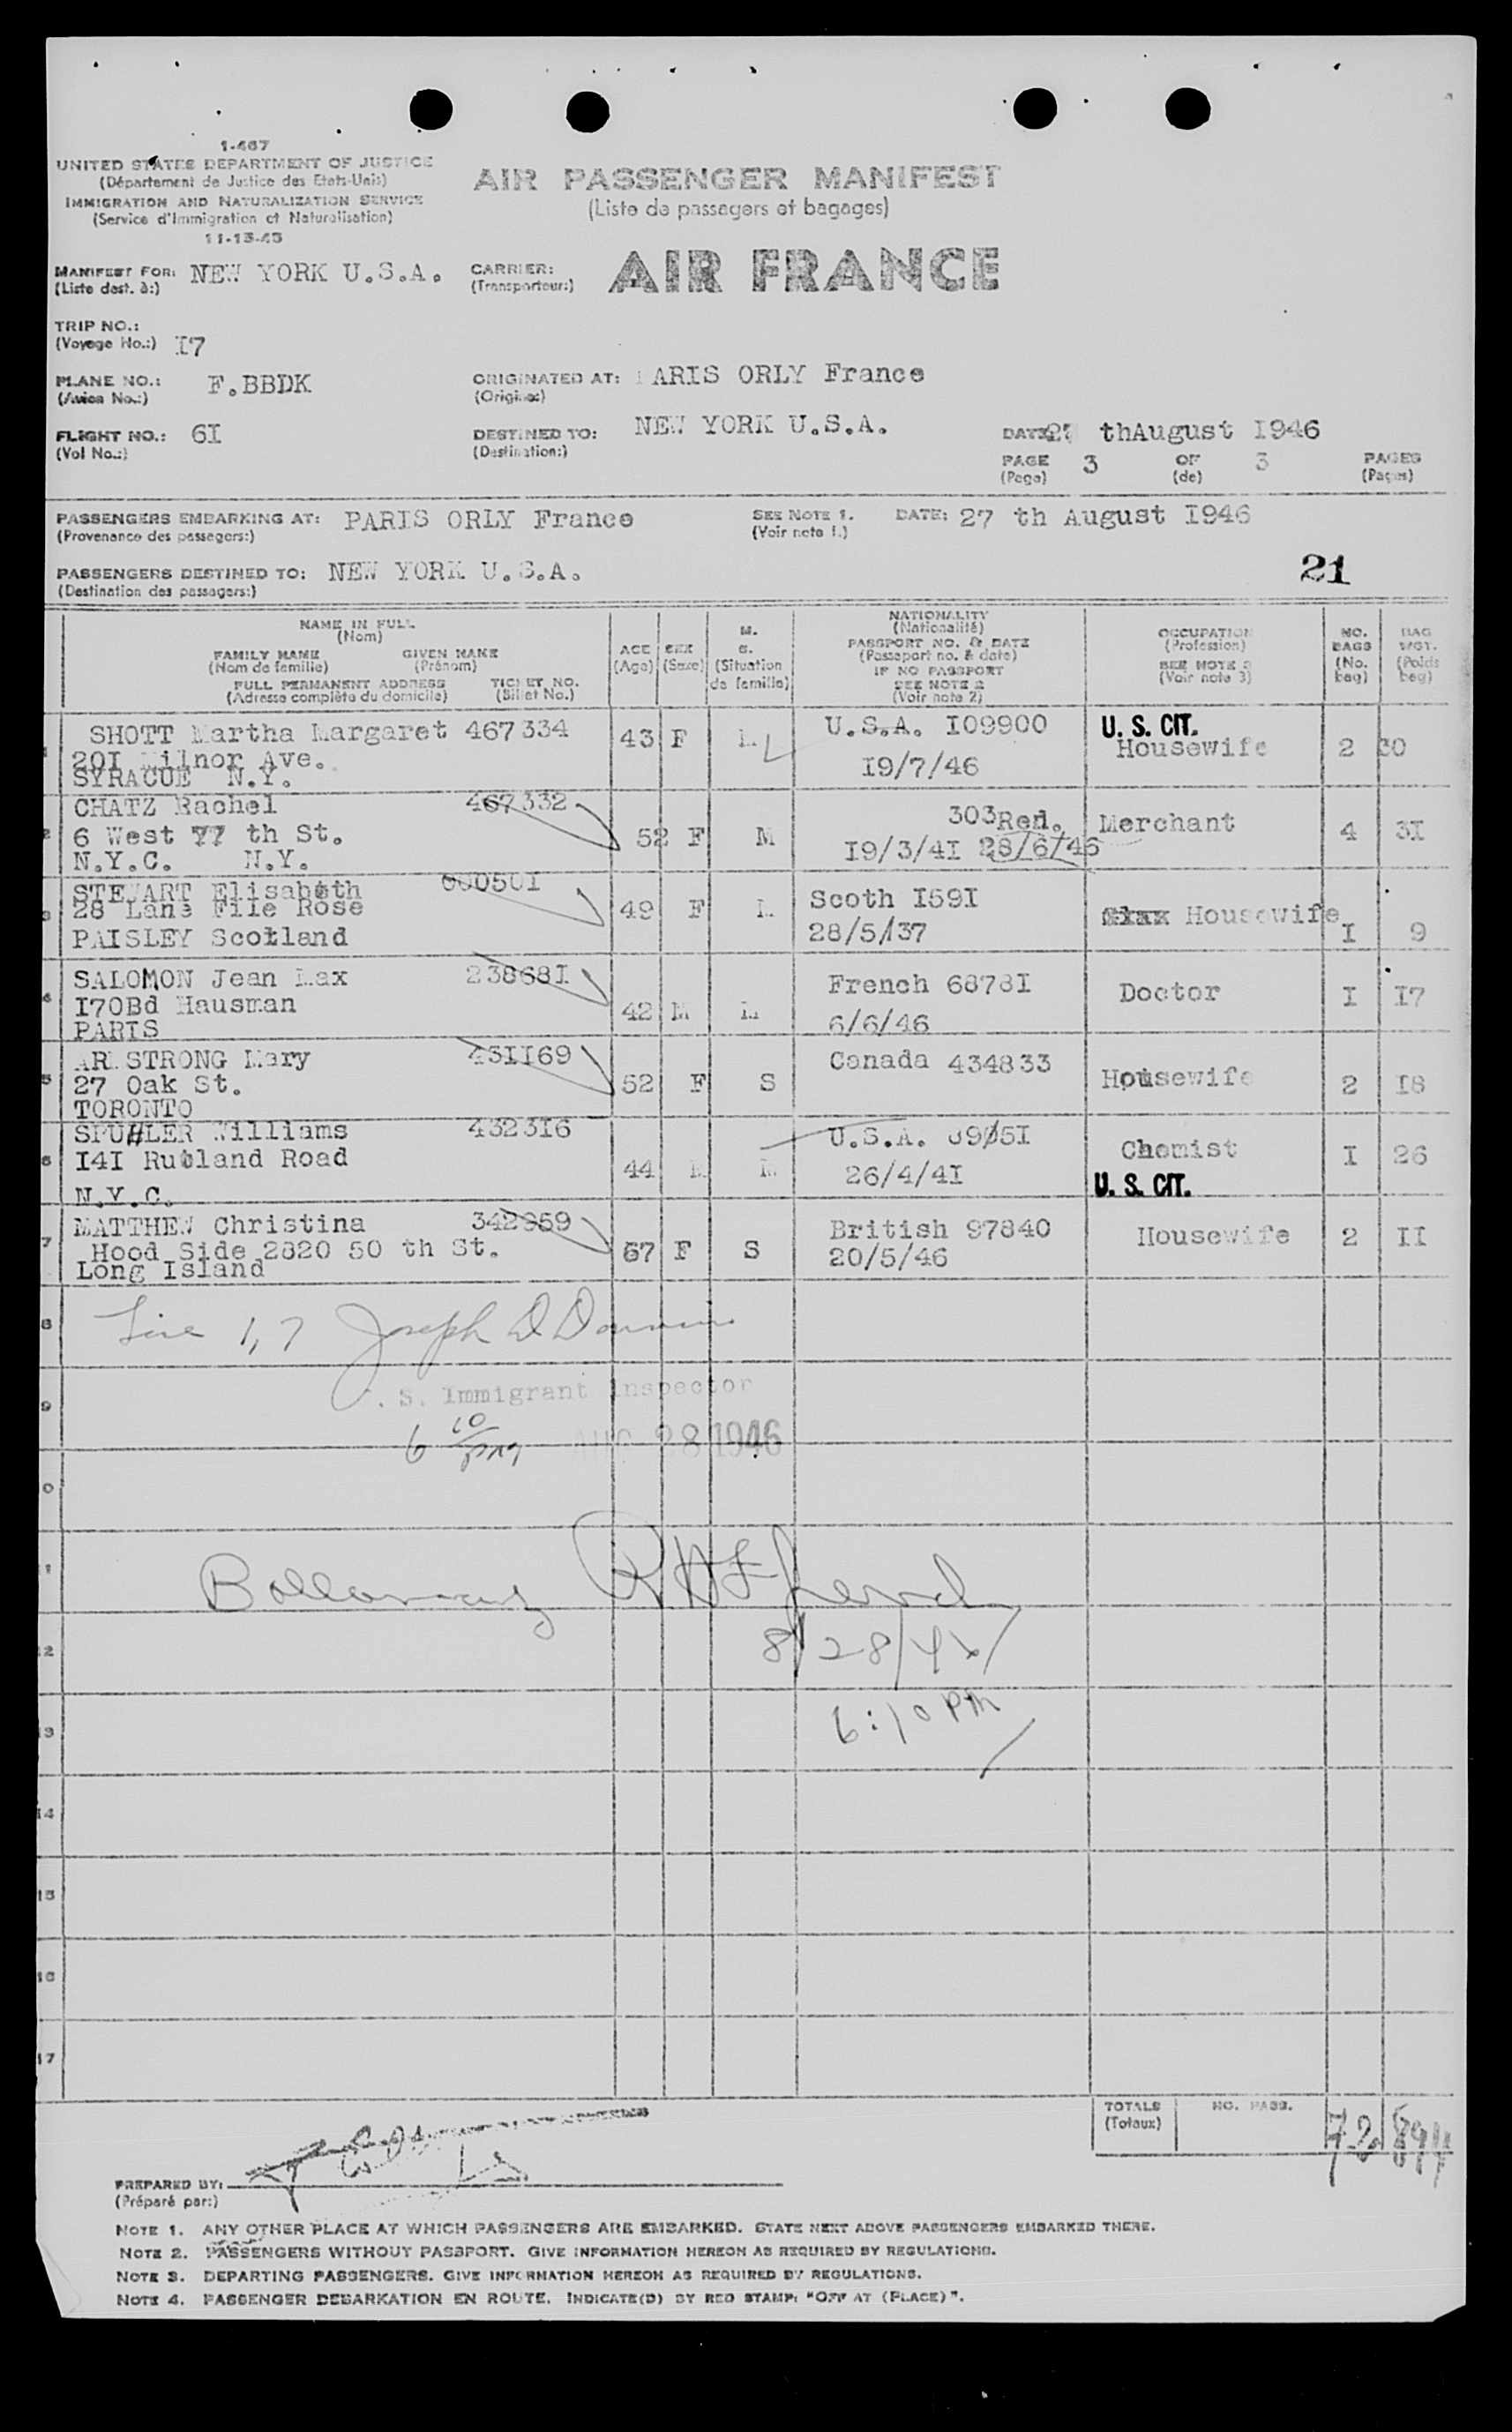 1-467
UNITED STATES DEPARTMENT OF JUSTICE
(Département de Justice des Etats-Unis)
IMMIGRATION AND NATURALIZATION SERVICE
(Service d'Immigration et Naturalisation)
11-13-45
AIR PASSENGER MANIFEST
(Liste de passagers et bagages)
MANIFEST FOR: NEW YORK U.S.A.
(Liste dest. à:)
CARRIER: AIR FRANCE
(Transporteur:)
TRIP NO.:
(Voyage No.:) I7
PLANE NO.: F.BBDK
(Avion No.:)
ORIGINATED AT: PARIS ORLY France
(Origine:)
FLIGHT NO.: 6I
(Vol No.:)
DESTINED TO: NEW YORK U.S.A.
(Destination:)
DATE: 27 thAugust I946
PAGE 3 OF 3 PAGES
(Page) (de) (Pages)
PASSENGERS EMBARKING AT: PARIS ORLY France
(Provenance des passagers:)
SEE NOTE 1. DATE: 27 th August I946
(Voir note 1.)
PASSENGERS DESTINED TO: NEW YORK U.S.A.
(Destination des passagers:)
21
NAME IN FULL
(Nom)
FAMILY NAME GIVEN NAME
(Nom de famille) (Prénom)
FULL PERMANENT ADDRESS TICKET NO.
(Adresse complète du domicile) (Billet No.)
AGE
(Age)
SEX
(Sexe)
M.
S.
(Situation
de famille)
NATIONALITY
(Nationalité)
PASSPORT NO. & DATE
(Passeport no. & date)
IF NO PASSPORT
SEE NOTE 2
(Voir note 2)
OCCUPATION
(Profession)
SEE NOTE 3
(Voir note 3)
NO.
BAGS
(No.
bag)
BAG
WGT.
(Poids
bag)
1 SHOTT Martha Margaret 467334 43 F M U.S.A. I09900 U. S. CIT.
20I Milnor Ave. 19/7/46 Housewife 2 30
SYRACUE N.Y.
2 CHATZ Rachel 467332 303 Red.
6 West 77 th St. 52 F M I9/3/4I 28/6/46 Merchant 4 3I
N.Y.C. N.Y.
3 STEWART Elisabeth 690501
28 Lane File Rose 49 F M Scoth I59I Housewife I 9
PAISLEY Scotland 28/5/37
4 SALOMON Jean Max 23868I French 6878I
I70Bd Hausman 42 M M 6/6/46 Doctor I I7
PARIS
5 ARMSTRONG Mary 43II69 Canada 434833
27 Oak St. 52 F S Housewife 2 I8
TORONTO
6 SPUHLER Williams 4323I6 U.S.A. 69051
I4I Rutland Road 44 M M 26/4/4I Chemist I 26
N.Y.C. U. S. CIT.
7 MATTHEW Christina 342959 British 97840
Hood Side 2820 50 th St. 67 F S 20/5/46 Housewife 2 II
Long Island
8 Line 1, 7 Joseph D
9 . S. Immigrant Inspector
6 10/pm AUG 28 1946
10
11 R H Friend
12 8/28/46
13 6:10 PM
14
15
16
17
TOTALS NO. PASS. 72
(Totaux)
PREPARED BY:
(Préparé par:)
NOTE 1. ANY OTHER PLACE AT WHICH PASSENGERS ARE EMBARKED. STATE NEXT ABOVE PASSENGERS EMBARKED THERE.
NOTE 2. PASSENGERS WITHOUT PASSPORT. GIVE INFORMATION HEREON AS REQUIRED BY REGULATIONS.
NOTE 3. DEPARTING PASSENGERS. GIVE INFORMATION HEREON AS REQUIRED BY REGULATIONS.
NOTE 4. PASSENGER DEBARKATION EN ROUTE. INDICATE(D) BY RED STAMP: "OFF AT (PLACE)".